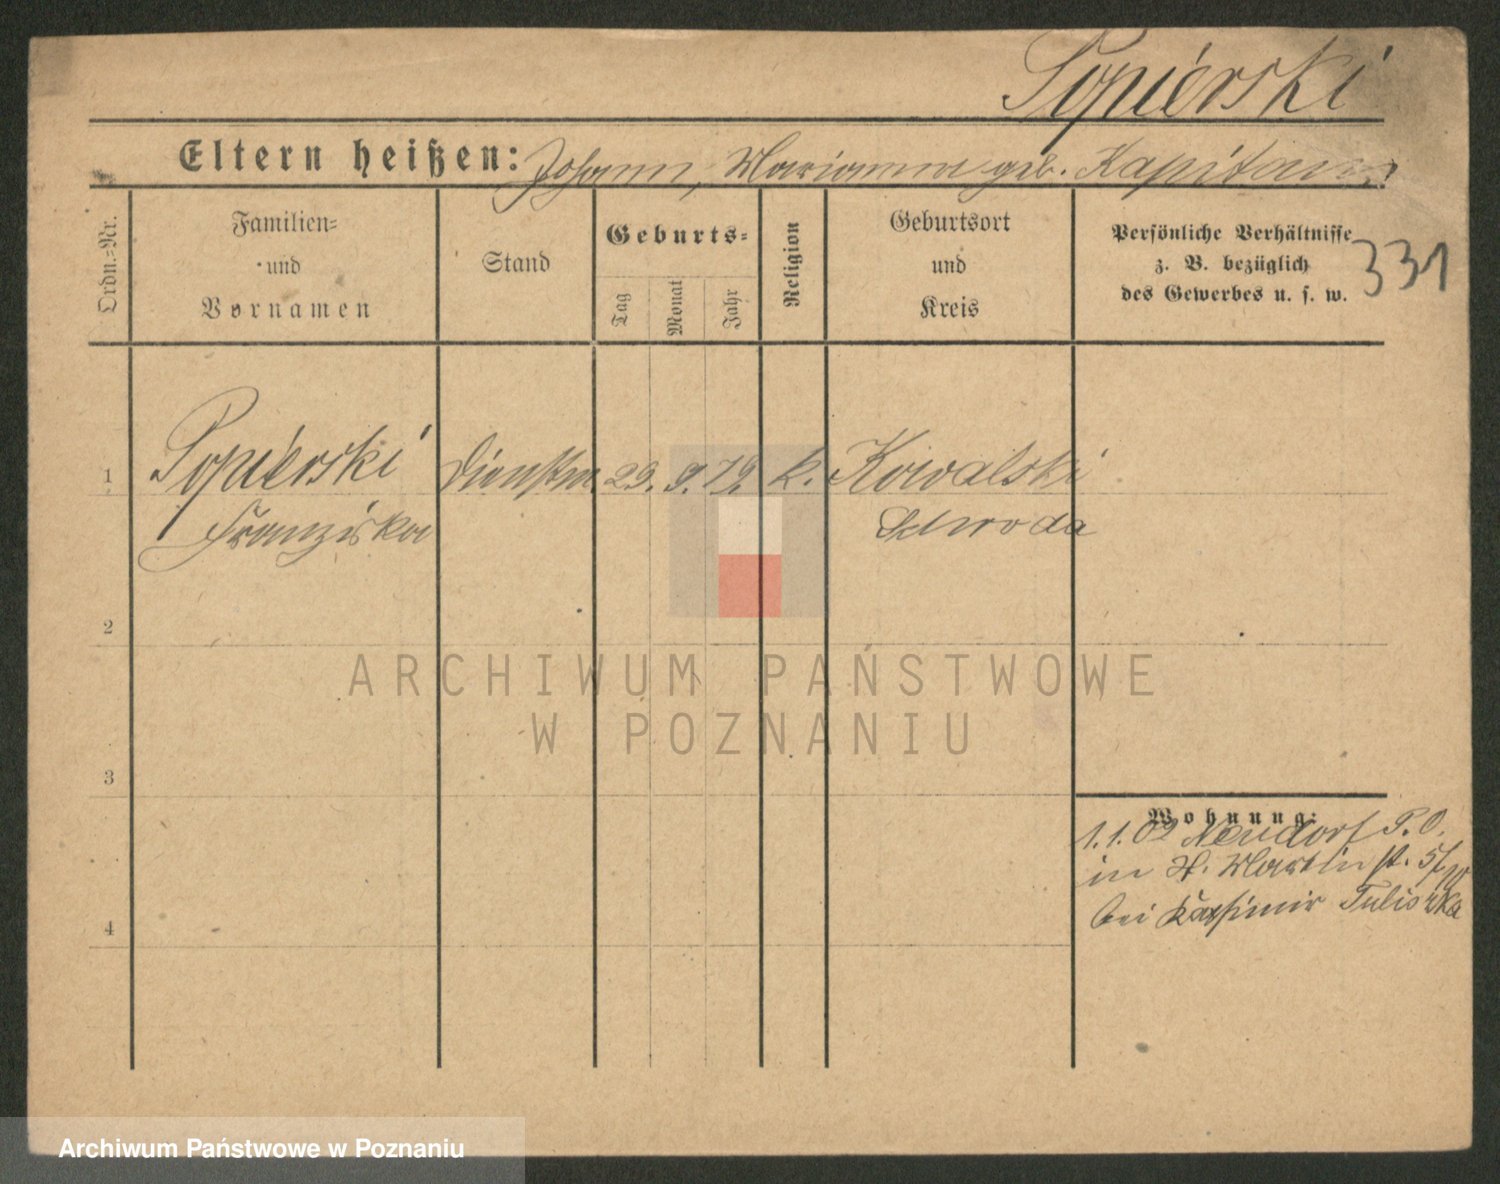 Popierski
Eltern heißen: Johann, Marianna geb. Kapitan
Ordn.-Nr.
Familien-
und
Vornamen
Stand
Geburts-
Tag
Monat
Jahr
Religion
Geburtsort
und
Kreis
Persönliche Verhältnisse
z. B. bezüglich
des Gewerbes u. s. w.
331
1
Popierski
Franziska
Dienstm. 29. 9. 79. k. Kowalski
Schroda
2
ARCHIWUM PAŃSTWOWE
W POZNANIU
3
Wohnung:
1.1.02 Neudorf P. O.
in St. Martin st.
bei Kasimir Tuliszka
4
Archiwum Państwowe w Poznaniu